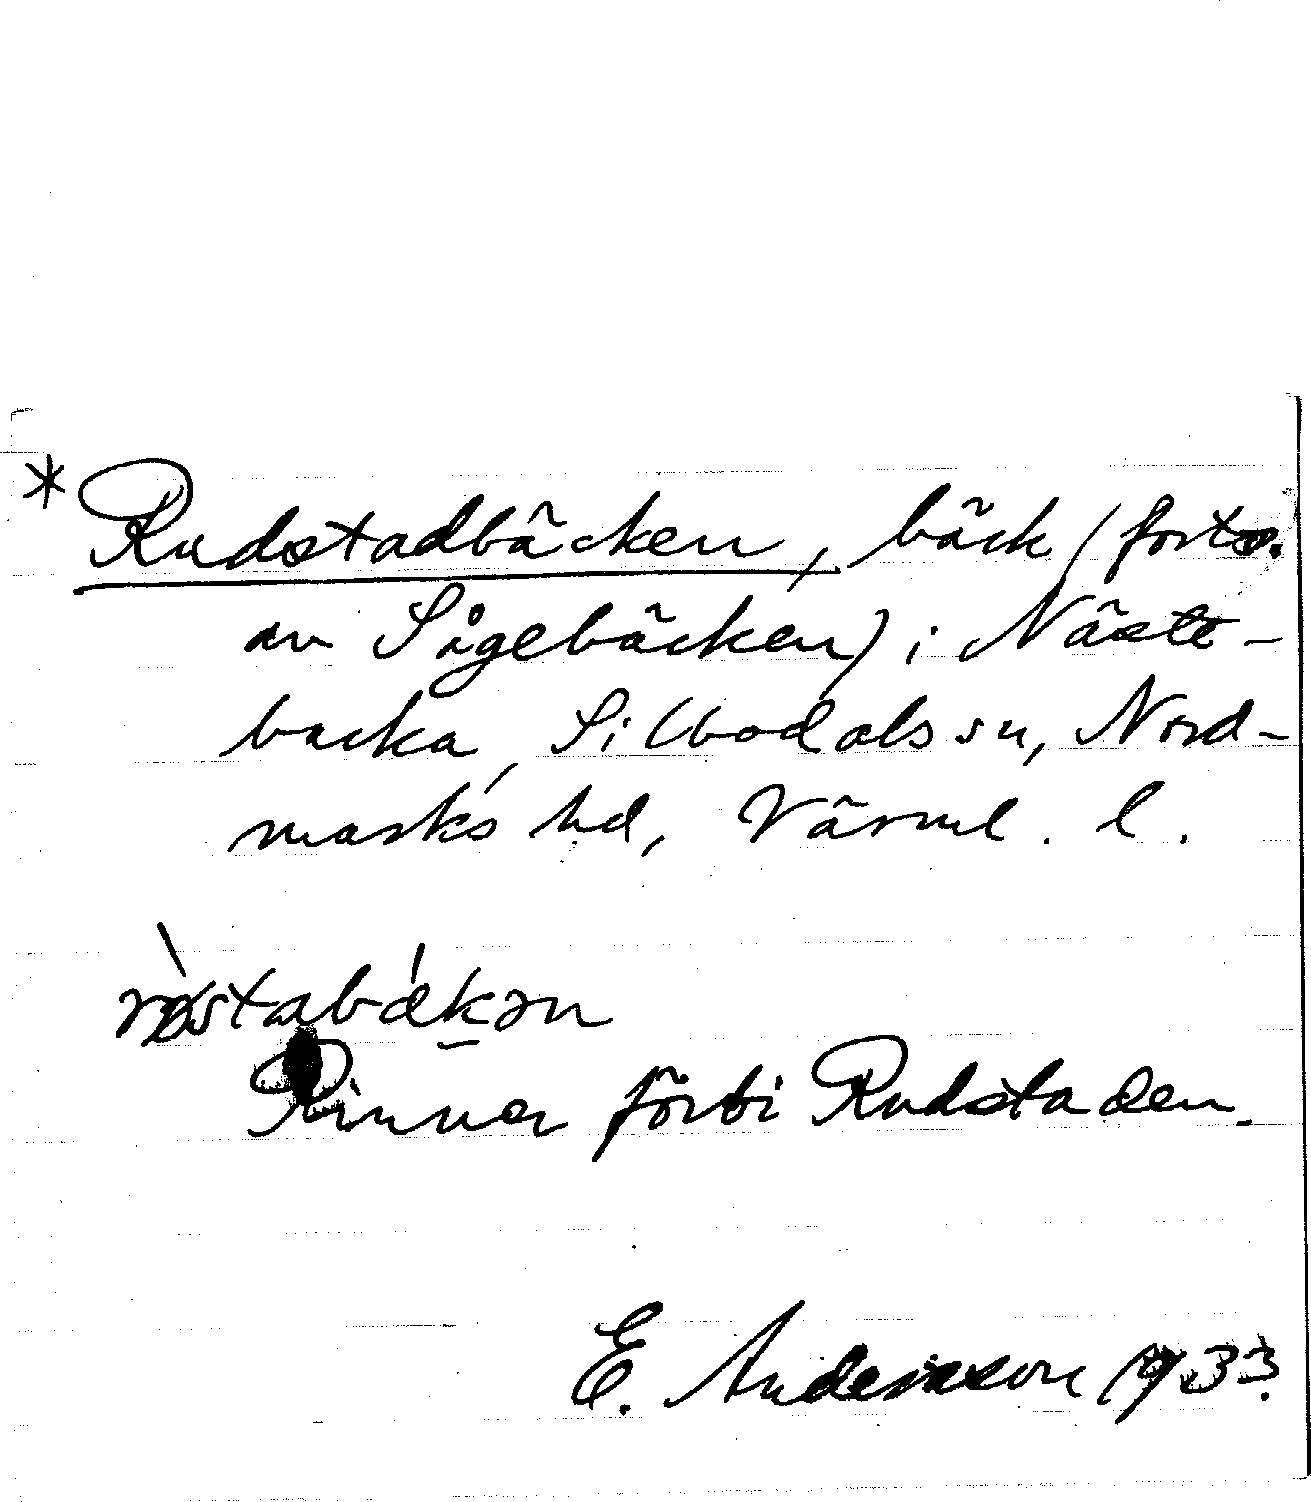 * Rudstadbäcken, bäck (forts.
av Sågebäcken) i Näste-
backa, Silbodals sn, Nord-
marks hd, Värml. l.
Rinner förbi Rudstaden.
E. Andersson 1933.